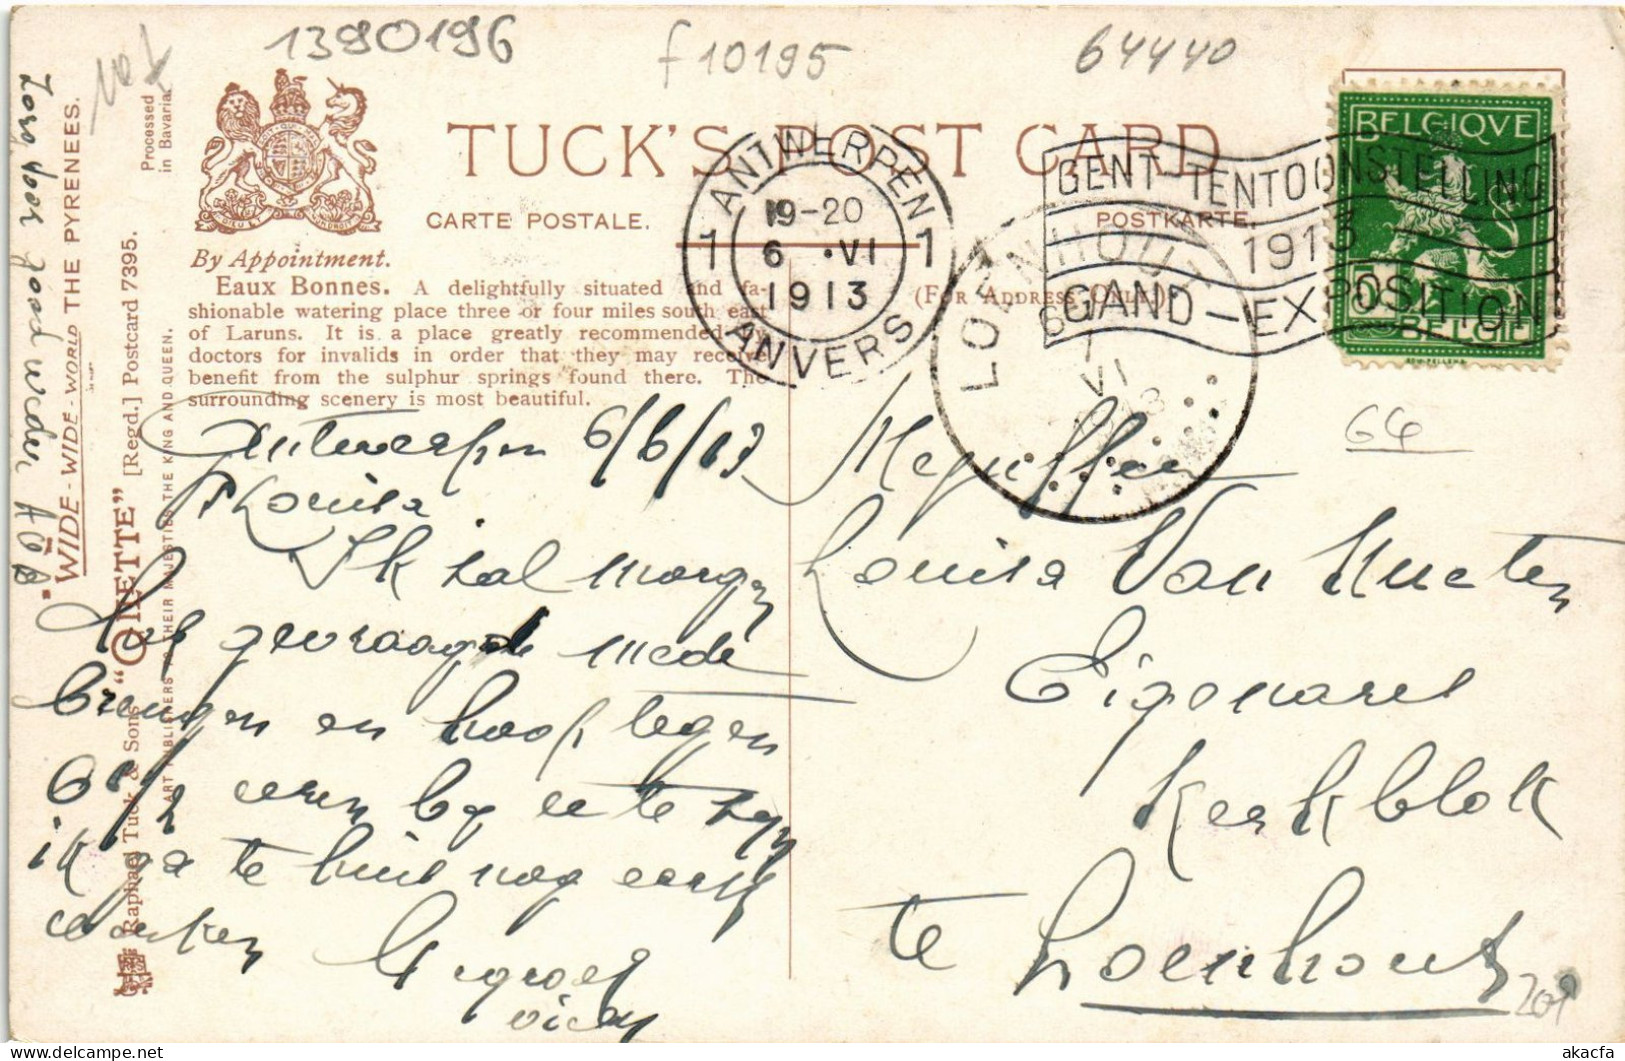 1390196
f10195
64440
TUCK'S POST CARD
CARTE POSTALE.
POSTKARTE.
(FOR ADDRESS ONLY.)
By Appointment.
Eaux Bonnes. A delightfully situated and fa-
shionable watering place three or four miles south east
of Laruns. It is a place greatly recommended by
doctors for invalids in order that they may receive
benefit from the sulphur springs found there. The
surrounding scenery is most beautiful.
Processed
in Bavaria.
WIDE-WIDE-WORLD THE PYRENEES.
Raphael Tuck & Sons' "OILETTE" [Regd.] Postcard 7395.
ART PUBLISHERS TO THEIR MAJESTIES THE KING AND QUEEN.
ANTWERPEN
1 19-20 1
6 • VI
1913
ANVERS
GENT-TENTOONSTELLING
1913
GAND-EXPOSITION
LOENHOUT
6
VI
13
BELGIQUE
BELGIE
64
Antwerpen 6/6/13
Louisa
Ik zal morgen
het gevraagde mede
brengen en hoop tegen
6 1/2 uren bij u te zijn
ik ga te huis nog eerst
werken
Zorg voor goed weder
Mejuffer
Louisa Van
Kerkblok
te Loenhout
201
akacfa